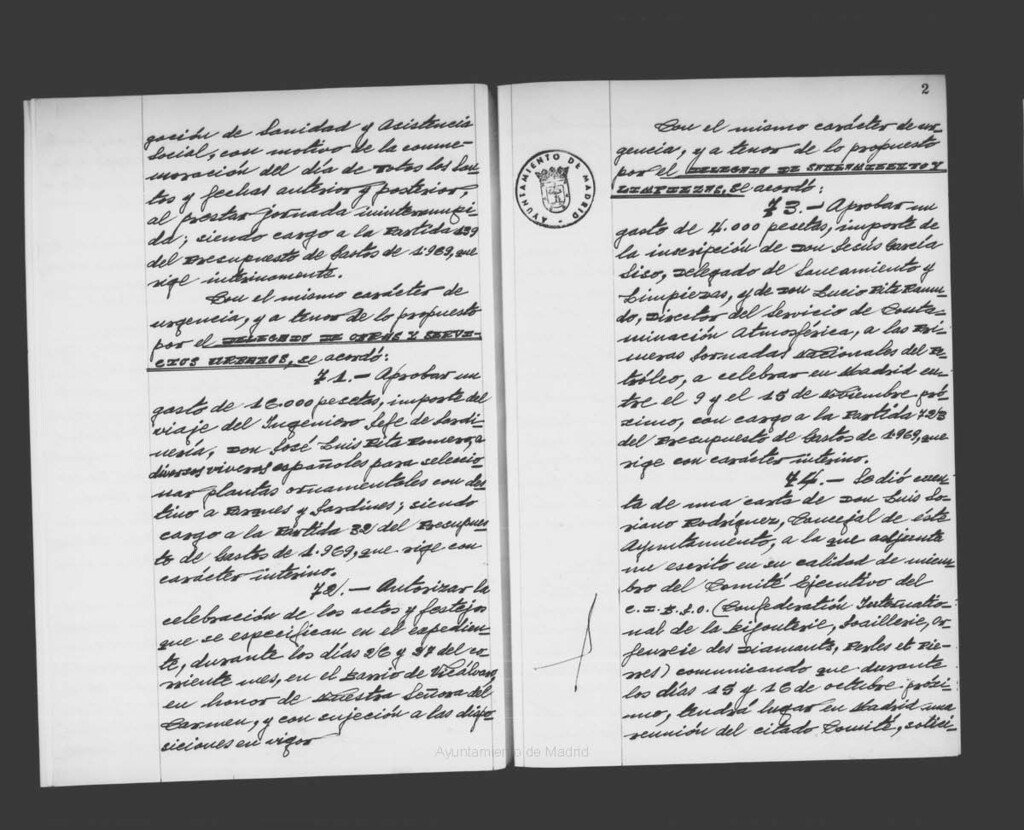 gación de Sanidad y Asistencia
Social, con motivo de la conme-
moración del día de Todos los San-
tos y fechas anterior y posterior,
al prestar jornada ininterrumpi-
da; siendo cargo a la Partida 139
del Presupuesto de Gastos de 1.969, que
rige interinamente.
Con el mismo carácter de
urgencia, y a tenor de lo propuesto
por el DELEGADO DE OBRAS Y SERVI-
CIOS URBANOS, se acordó:
71.— Aprobar un
gasto de 16.000 pesetas, importe del
viaje del Ingeniero Jefe de Jardi-
nería, Don José Luis Pita Romero, a
diversos viveros españoles para seleccio-
nar plantas ornamentales con des-
tino a Parques y Jardines; siendo
cargo a la Partida 32 del Presupues-
to de Gastos de 1.969, que rige con
carácter interino.
72.— Autorizar la
celebración de los actos y festejos
que se especifican en el expedien-
te, durante los días 26 y 27 del co-
rriente mes, en el Barrio de Vicálvaro,
en honor de Nuestra Señora del
Carmen, y con sujeción a las dispo-
siciones en vigor
2
AYUNTAMIENTO DE MADRID
Con el mismo carácter de ur-
gencia, y a tenor de lo propuesto
por el DELEGADO DE SANEAMIENTO Y
LIMPIEZAS, se acordó:
73.— Aprobar un
gasto de 4.000 pesetas, importe de
la inscripción de Don Jesús García
Siso, Delegado de Saneamiento y
Limpiezas, y de Don Lucio Pita
Director del Servicio de Conta-
minación Atmosférica, a las Pri-
meras Jornadas Nacionales del Pe-
tróleo, a celebrar en Madrid en-
tre el 9 y el 15 de Noviembre pró-
ximo, con cargo a la Partida
del Presupuesto de Gastos de 1.969, que
rige con carácter interino.
74.— Se dió cuen-
ta de una carta de Don Luis So-
riano Rodríguez, Concejal de éste
Ayuntamiento, a la que adjunta
un escrito en su calidad de miem-
bro del Comité Ejecutivo del
(Confederatión Internatio-
nal de la Bijouterie, Joaillerie, Or-
fevrerie des Diamants, Perles et Pie-
rres) comunicando que durante
los días 15 y 16 de octubre próxi-
mo, tendrá lugar en Madrid una
reunión del citado Comité, solici-
Ayuntamiento de Madrid